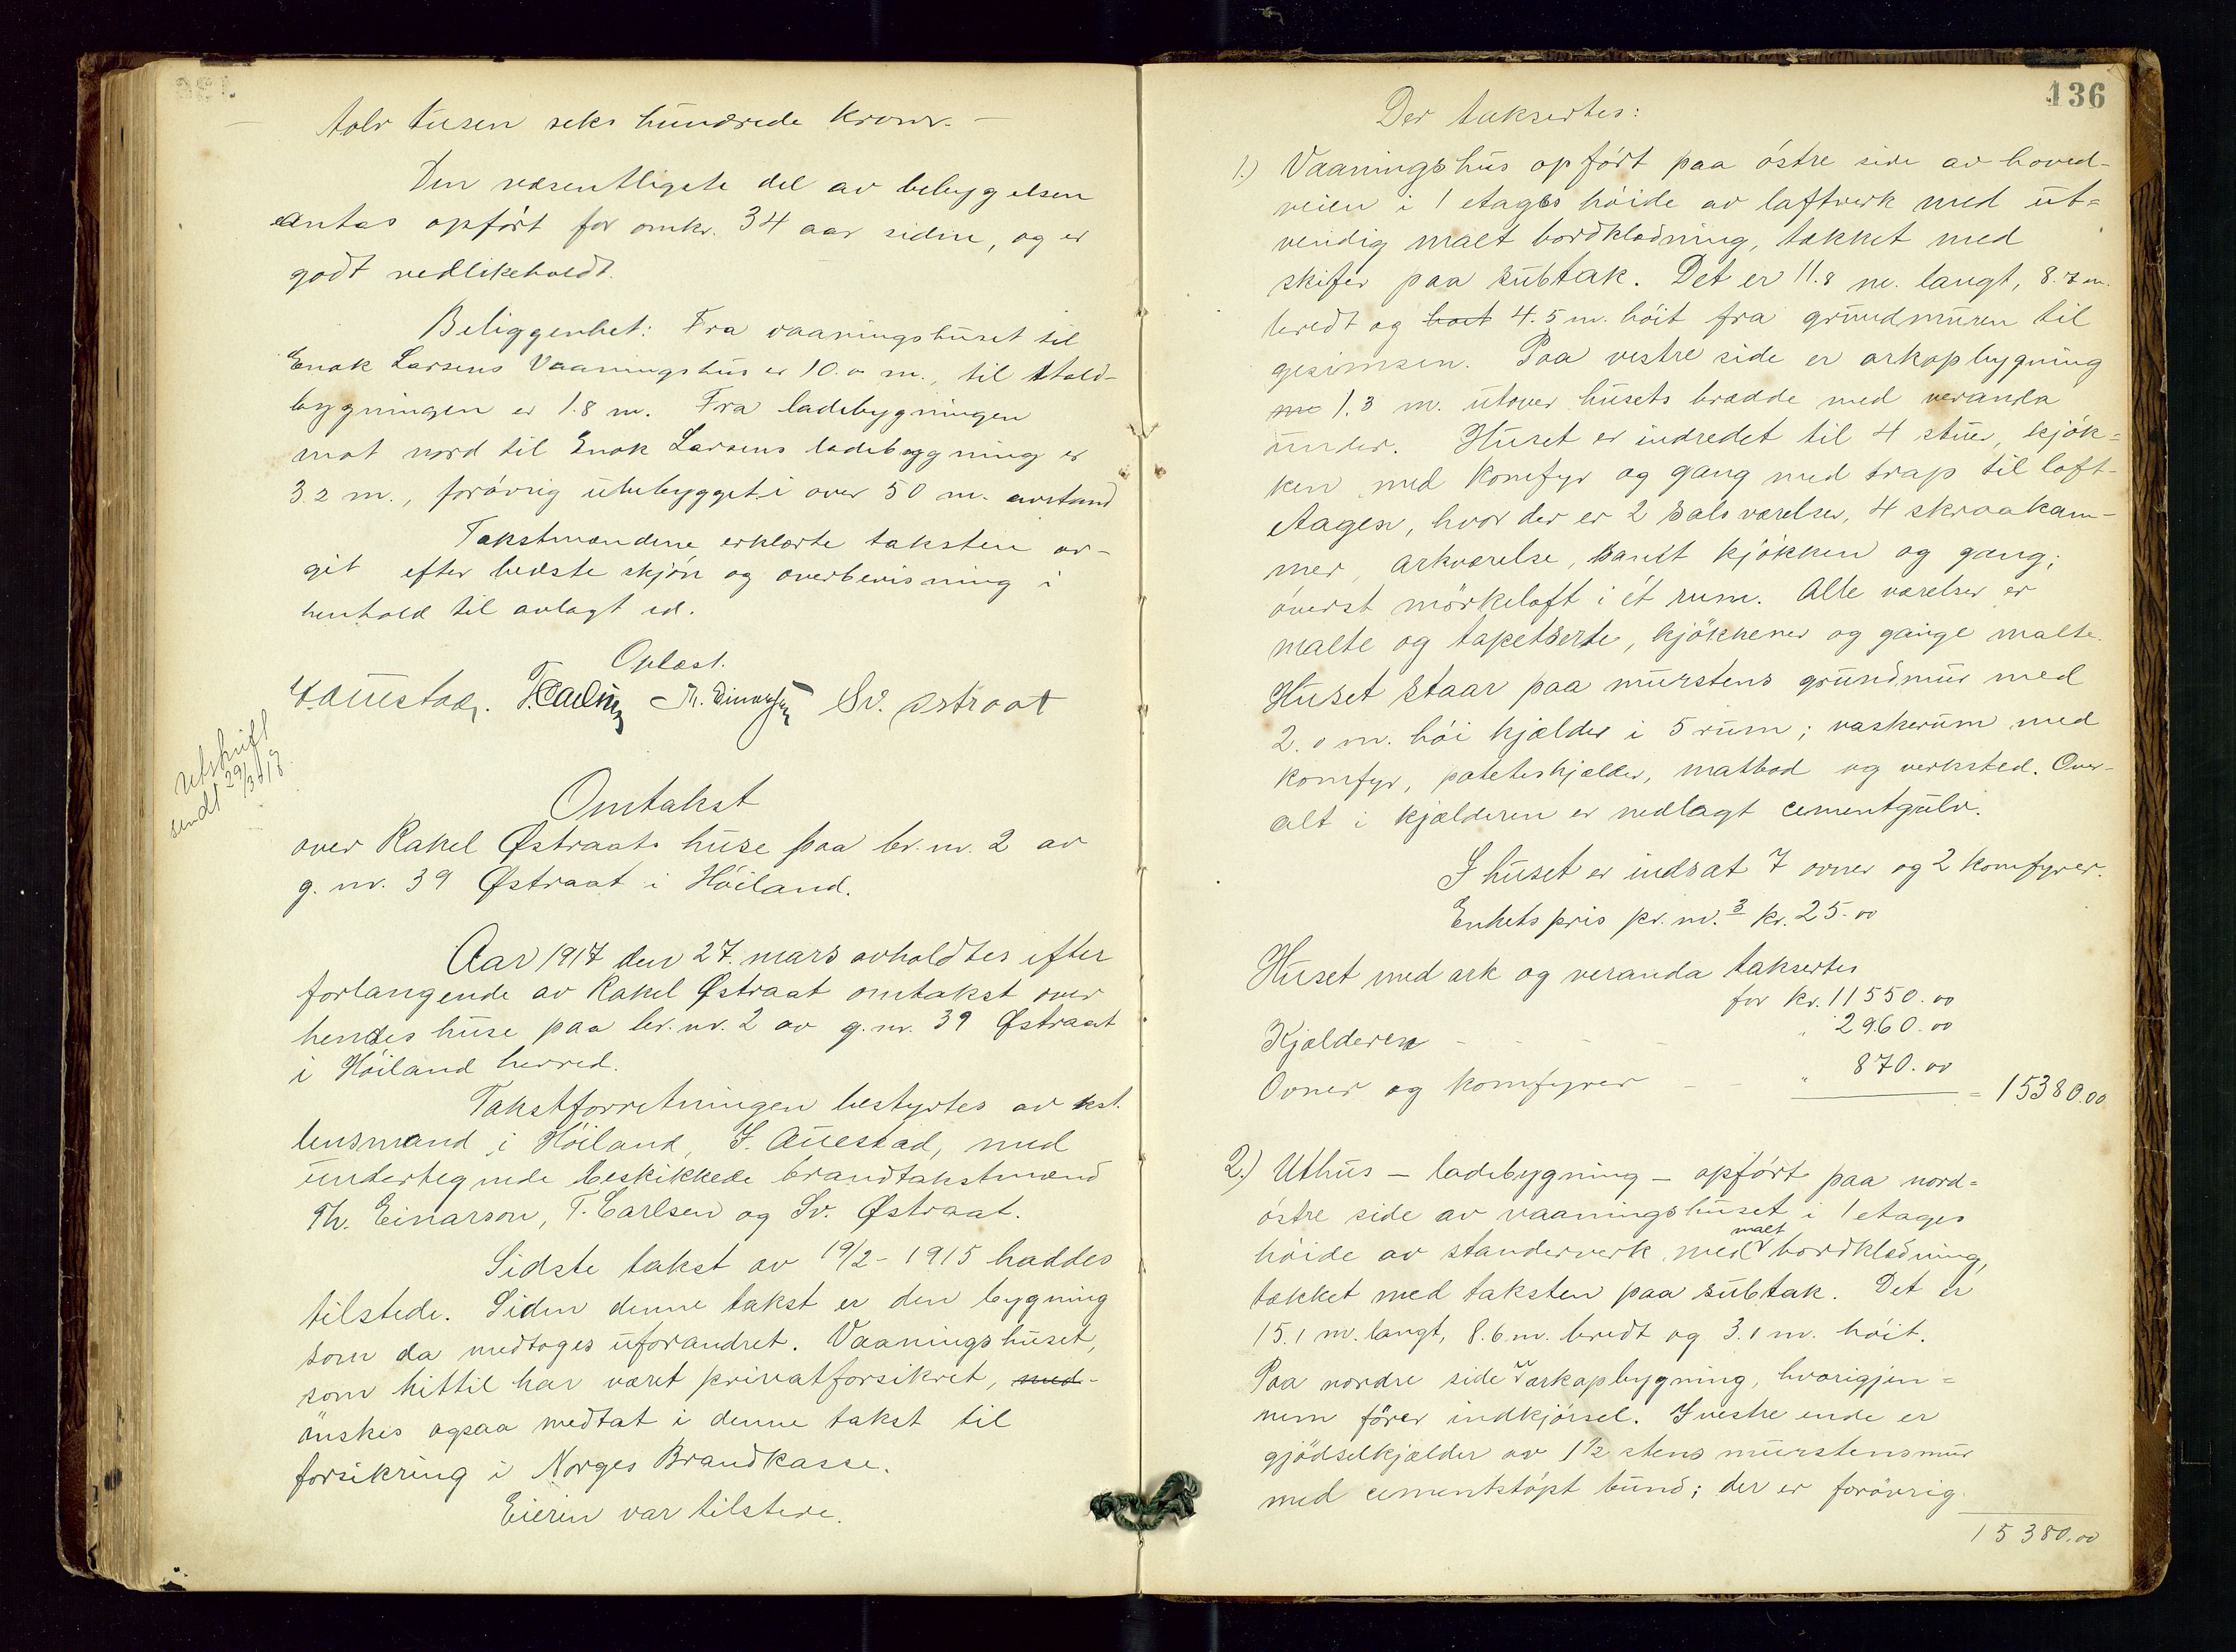 tolv tusen seks hundrede kroner. —
Den væsentligste del av bebyggelsen
antas opført for omkr. 34 aar siden, og er
godt vedlikeholdt.
Beliggenhet: Fra vaaningshuset til
Enok Larsens Vaaningshus er 10.0 m., til stald-
bygningen er 1.8 m. Fra ladebygningen
mot nord til Enok Larsens ladebygning er
3.2 m., forøvrig utbebygget i over 50 m. avstand
Takstmændene erklærte taksten av-
git efter bedste skjøn og overbevisning i
henhold til avlagt ed.
Oplæst.
Auestad. T. Carlsen Th. Einarsen Sv. Østraat
Utskrift
sendt 29/3 17
Omtakst
over Rakel Østraats huse paa br. nr. 2 av
g. nr. 39 Østraat i Höiland.
Aar 1917 den 27. mars avholdtes efter
forlangende av Rakel Østraat omtakst over
hendes huse paa br. nr. 2 av g. nr. 39 Østraat
i Höiland herred.
Takstforretningen bestyrtes av kst.
lensmand i Höiland, I. Auestad, med
undertegnede beskikkede brandtakstmænd
Th. Einarson, T. Carlsen og Sv. Østraat.
Sidste takst av 19/2 - 1915 haddes
tilstede. Siden denne takst er den bygning
som da medtoges uforandret. Vaaningshuset,
som hittil har været privatforsikret, med-
ønskes ogsaa medtat i denne takst til
forsikring i Norges Brandkasse.
Eieren var tilstede.
136
Der taksertes:
1.) Vaaningshus opført paa østre side av hoved-
veien i 1 etages høide av laftverk med ut-
vendig malt bordklædning, tækket med
skifer paa subtak. Det er 11.8 m. langt, 8.7 m.
bredt og hoit 4.5 m. höit fra grundmuren til
gesimsen. Paa vestre side er arkopbygning
1.3 m. utover husets brædde med veranda
under. Huset er indredet til 4 stuer, kjøk-
ken med komfyr og gang med trap til loft-
etagen, hvor der er 2 salsværelser, 4 skraakam-
mer, arkværelse, samt kjøkken og gang;
øverst mörkeloft i ét rum. Alle værelser er
malte og tapetserte, kjökkener og gange malte.
Huset staar paa murstens grundmur med
2.0 m. höi kjælder i 5 rum; vaskerum med
komfyr, poteteskjælder, matbod og verksted. Over-
alt i kjælderen er nedlagt cementgulv.
I huset er indsat 7 ovner og 2 komfyrer.
Enhetspris pr. m.3 kr. 25.00
Huset med ark og veranda taksertes
for kr. 11550.00
Kjælderen - - - - " 2960.00
Ovner og komfyrer - - " 870.00
= 15380.00
2.) Uthus - ladebygning - opført paa nord-
østre side av vaaningshuset i 1 etages
malt
höide av standerverk med bordklædning,
tækket med taksten paa subtak. Det er
15.1 m. langt, 8.6 m. bredt og 3.1 m. höit.
Paa nordre side er arkopbygning, hvorigjen-
nem förer indkjørsel. I vestre ende er
gjödselkjælder av 1 1/2 stens murstensmur
med cementstöpt bund; der er forøvrig
15380.00